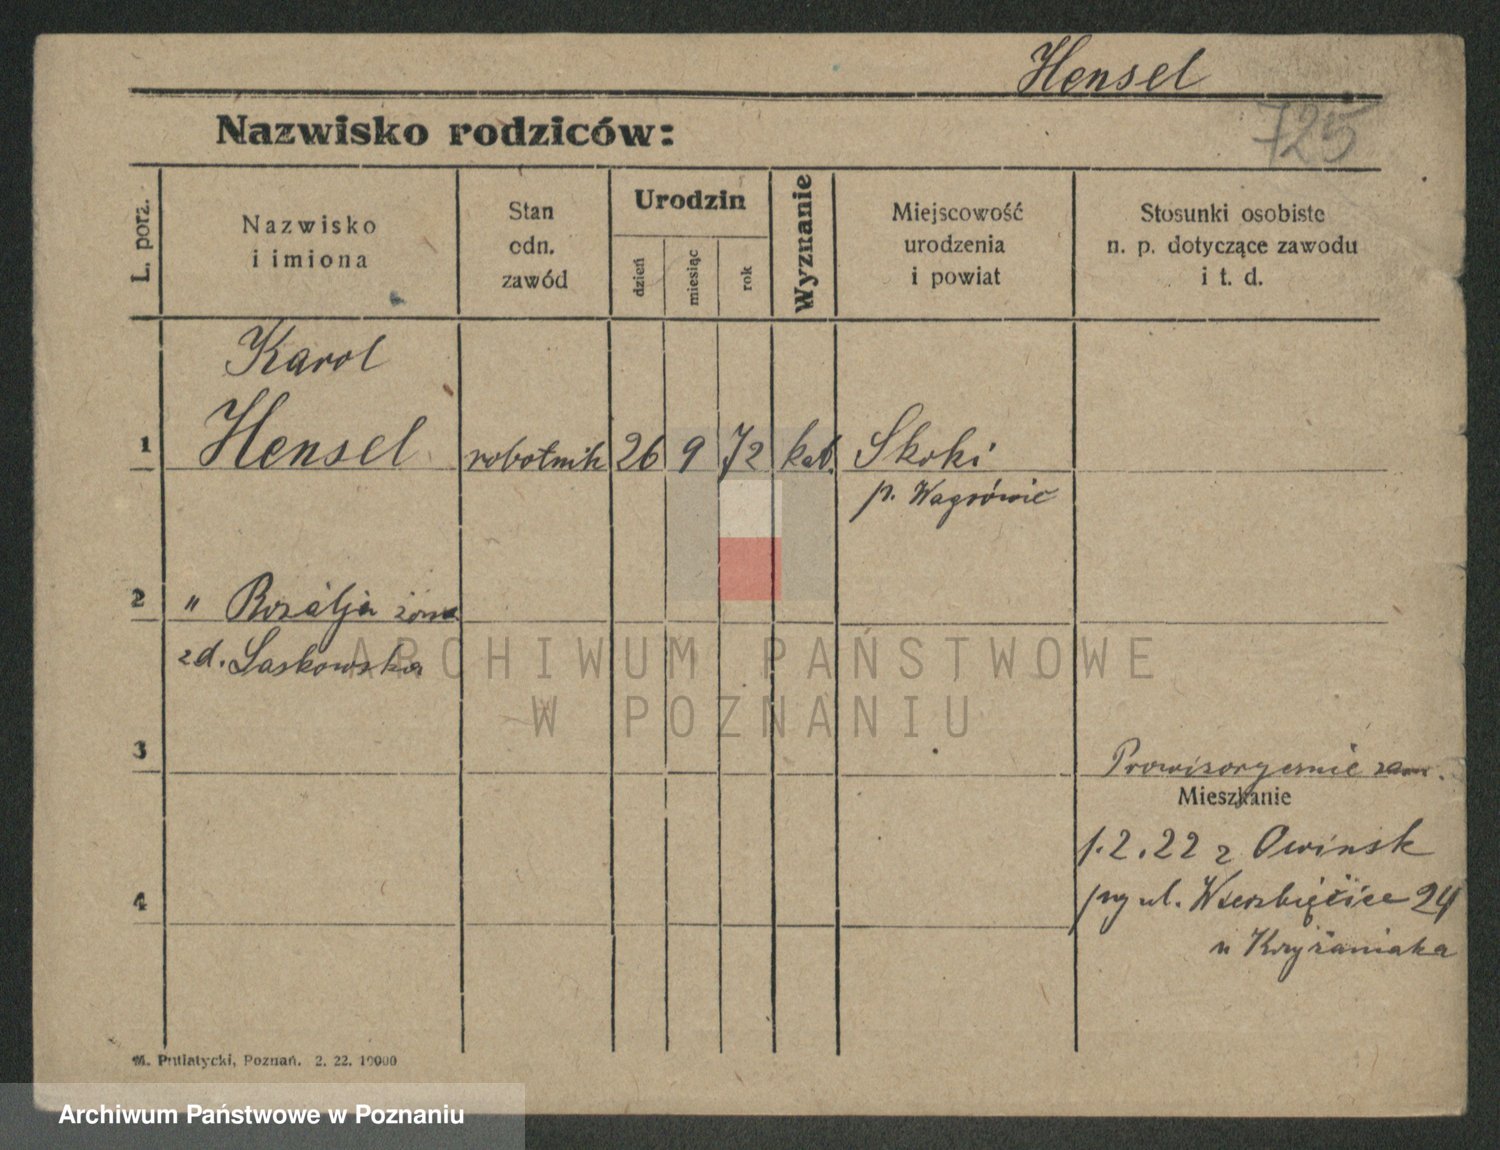 Hensel
725
Nazwisko rodziców:
L. porz.
Nazwisko
i imiona
Stan
cdn.
zawód
Urodzin
dzień
miesiąc
rok
Wyznanie
Miejscowość
urodzenia
i powiat
Stosunki osobiste
n. p. dotyczące zawodu
i t. d.
Karol
1 Hensel robotnik 26 9 72 kat. Skoki
p. Wągrówiec
2 " Rozalja żona
zd. Laskowska
3
Prowizorycznie zam.
Mieszkanie
1.2.22 z Owinsk
4
przy ul. Wierzbięcice 24
u Krzyżaniaka
M. Putiatycki, Poznań. 2. 22. 10000
ARCHIWUM PAŃSTWOWE
W POZNANIU
Archiwum Państwowe w Poznaniu